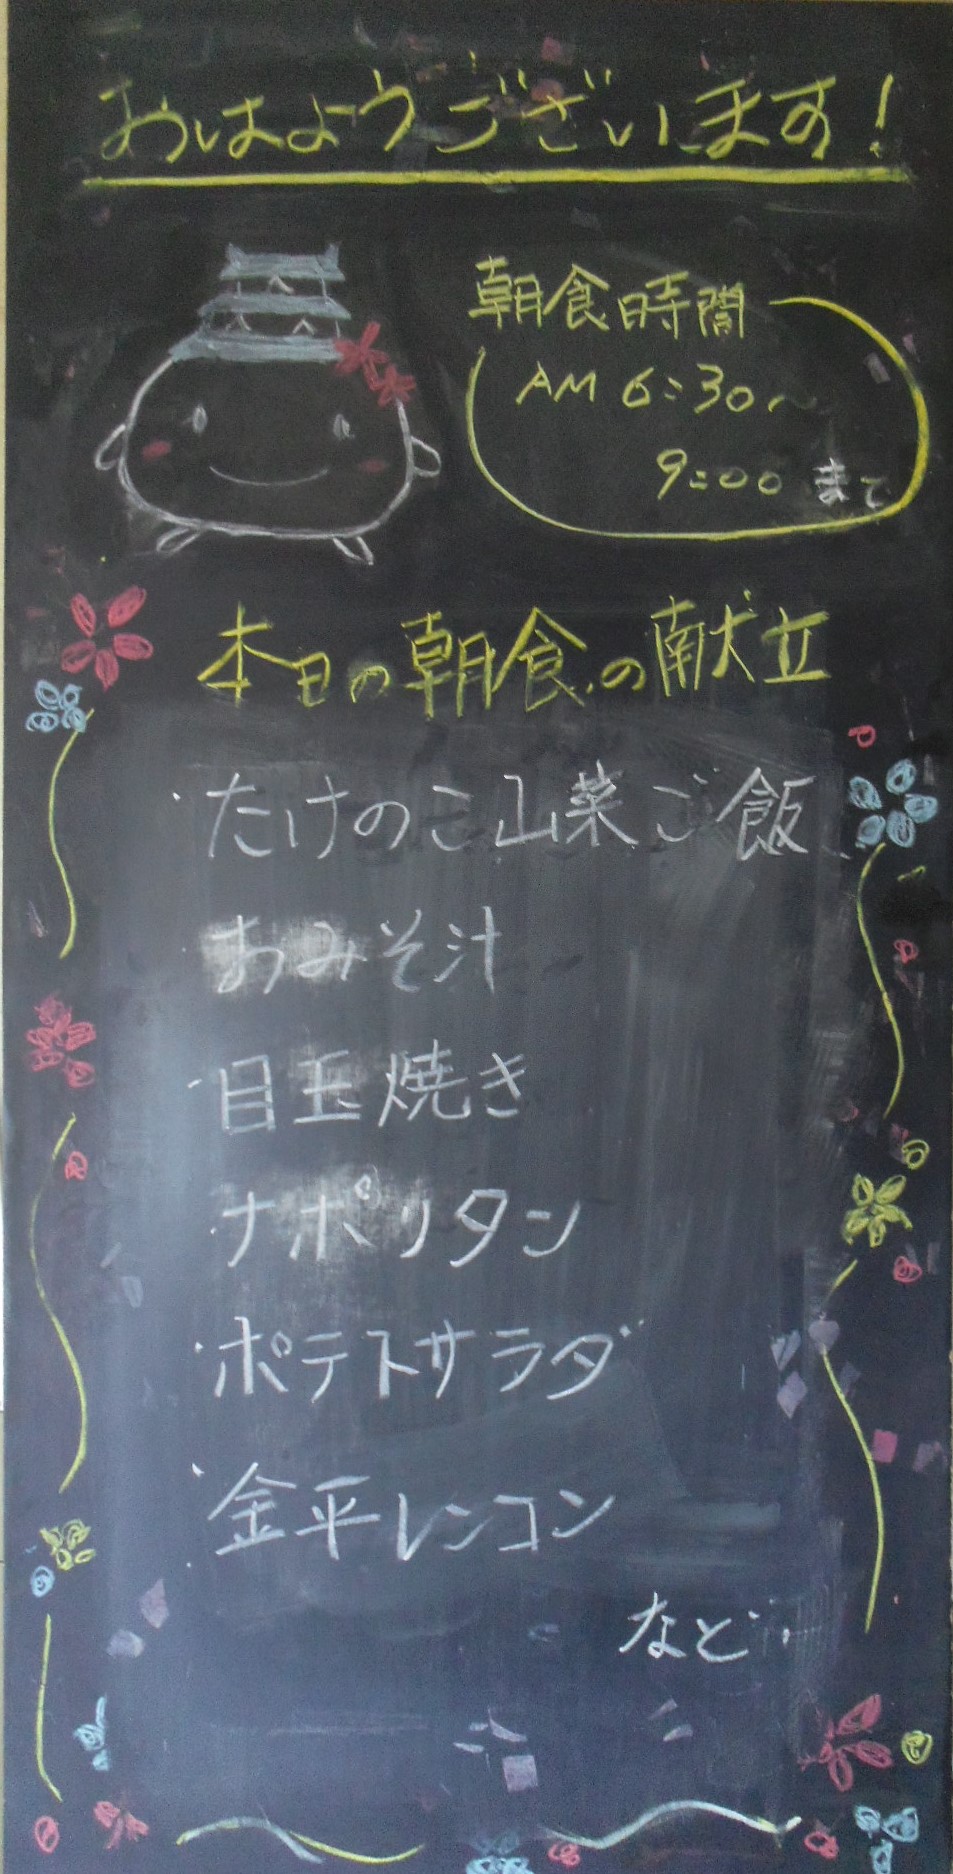 おはようございます!
朝食時間
AM 6:30~
9:00 まで
本日の朝食の献立
・たけのこ山菜ご飯
おみそ汁
・目玉焼き
ナポリタン
・ポテトサラダ
・金平レンコン
など